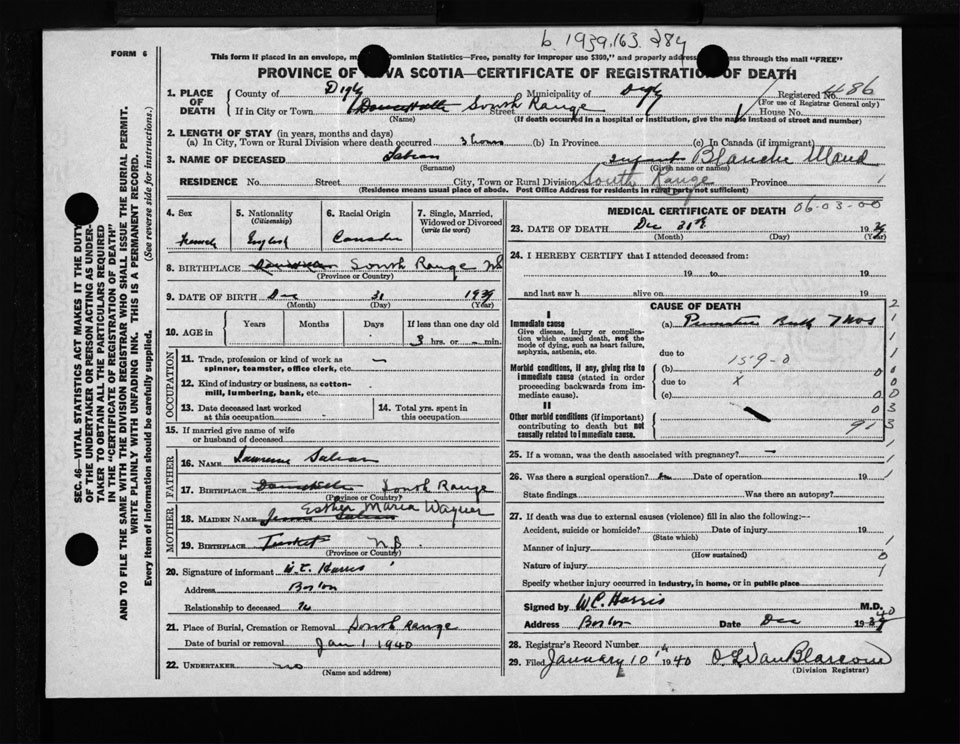 b. 1939.163.284
FORM 6
This form if placed in an envelope, Dominion Statistics—Free, penalty for improper use $300," and properly through the mail "FREE"
PROVINCE OF VA SCOTIA—CERTIFICATE OF REGISTRATION OF DEATH
1. PLACE OF DEATH
County of Digby Municipality of Digby Registered No. 486
(For use of Registrar General only)
If in City or Town South Range Street House No.
(Name) (If death occurred in a hospital or institution, give the name instead of street and number)
2. LENGTH OF STAY (in years, months and days)
(a) In City, Town or Rural Division where death occurred 3 hours (b) In Province (c) In Canada (if immigrant)
3. NAME OF DECEASED Infant Blanche Maud
(Surname) (Given name or names)
RESIDENCE No. Street City, Town or Rural Division South Range Province 1
(Residence means usual place of abode. Post Office Address for residents in rural parts not sufficient)
4. Sex
5. Nationality (Citizenship)
6. Racial Origin
Canadian
7. Single, Married, Widowed or Divorced (write the word)
8. BIRTHPLACE South Range NS
(Province or Country)
9. DATE OF BIRTH Dec 31 1939
(Month) (Day) (Year)
10. AGE in
Years Months Days If less than one day old
3 hrs. or – min.
OCCUPATION
11. Trade, profession or kind of work as spinner, teamster, office clerk, etc. –
12. Kind of industry or business, as cotton-mill, lumbering, bank, etc.
13. Date deceased last worked at this occupation
14. Total yrs. spent in this occupation
15. If married give name of wife or husband of deceased
FATHER
16. NAME Lawrence
17. BIRTHPLACE South Range
(Province or Country)
MOTHER
18. MAIDEN NAME Esther Maria Wagner
19. BIRTHPLACE Tusket
(Province or Country)
20. Signature of informant W.C. Harris
Address
Relationship to deceased
21. Place of Burial, Cremation or Removal South Range
Date of burial or removal Jan 1 1940
22. UNDERTAKER no
(Name and address)
MEDICAL CERTIFICATE OF DEATH 06-03-00
23. DATE OF DEATH Dec 31st 1939
(Month) (Day) (Year)
24. I HEREBY CERTIFY that I attended deceased from:
19 to 19
and last saw h alive on 19
CAUSE OF DEATH
I
Immediate cause
Give disease, injury or complication which caused death, not the mode of dying, such as heart failure, asphyxia, asthenia, etc.
(a) Premature Birth 7 mos
due to
159-0
Morbid conditions, if any, giving rise to immediate cause (stated in order proceeding backwards from immediate cause).
(b)
due to X
(c)
II
Other morbid conditions (if important) contributing to death but not causally related to immediate cause.
25. If a woman, was the death associated with pregnancy? –
26. Was there a surgical operation? no Date of operation 19
State findings Was there an autopsy?
27. If death was due to external causes (violence) fill in also the following:—
Accident, suicide or homicide? Date of injury 19
(State which)
Manner of injury
(How sustained)
Nature of injury
Specify whether injury occurred in industry, in home, or in public place
Signed by W.C. Harris M.D.
Address Date Dec 1939 40
28. Registrar's Record Number 4
29. Filed January 10 1940 O.L. Van Blarcom
(Division Registrar)
SEC. 46—VITAL STATISTICS ACT MAKES IT THE DUTY OF THE UNDERTAKER OR PERSON ACTING AS UNDERTAKER TO OBTAIN ALL THE PARTICULARS REQUIRED IN THE "CERTIFICATE OF REGISTRATION OF DEATH" AND TO FILE THE SAME WITH THE DIVISION REGISTRAR WHO SHALL ISSUE THE BURIAL PERMIT.
WRITE PLAINLY WITH UNFADING INK. THIS IS A PERMANENT RECORD.
Every item of information should be carefully supplied. (See reverse side for instructions.)